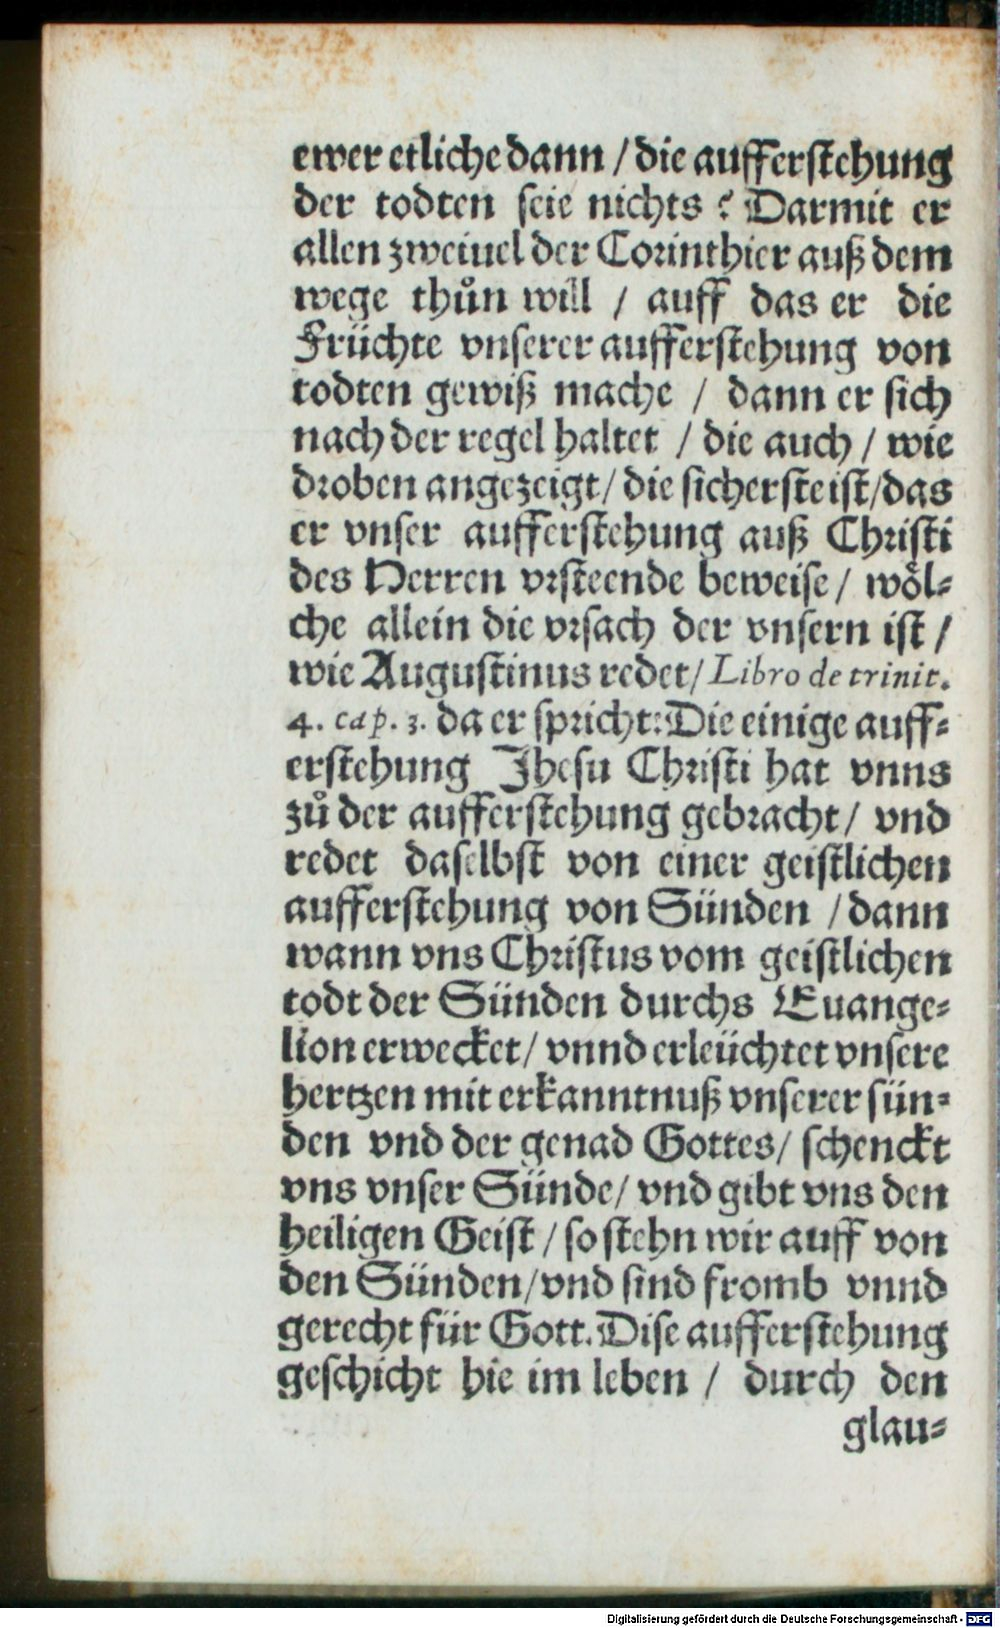 ewer etliche dann / die aufferstehung
der todten seie nichts ? Darmit er
allen zweiuel der Corinthier auß dem
wege thůn will / auff das er die
Früchte vnserer aufferstehung von
todten gewiß mache / dann er sich
nach der regel haltet / die auch / wie
droben angezeigt / die sicherste ist / das
er vnser aufferstehung auß Christi
des Herren vrsteende beweise / woͤl-
che allein die vrsach der vnsern ist /
wie Augustinus redet / Libro de trinit.
4. cap. 3. da er spricht: Die einige auff-
erstehung Jhesu Christi hat vnns
zů der aufferstehung gebracht / vnd
redet daselbst von einer geistlichen
aufferstehung von Sünden / dann
wann vns Christus vom geistlichen
todt der Sünden durchs Euange-
lion erwecket / vnnd erleüchtet vnsere
hertzen mit erkanntnuß vnserer sün-
den vnd der genad Gottes / schenckt
vns vnser Sünde / vnd gibt vns den
heiligen Geist / so stehn wir auff von
den Sünden / vnd sind fromb vnnd
gerecht für Gott. Dise aufferstehung
geschicht hie im leben / durch den
glau-
Digitalisierung gefördert durch die Deutsche Forschungsgemeinschaft - DFG